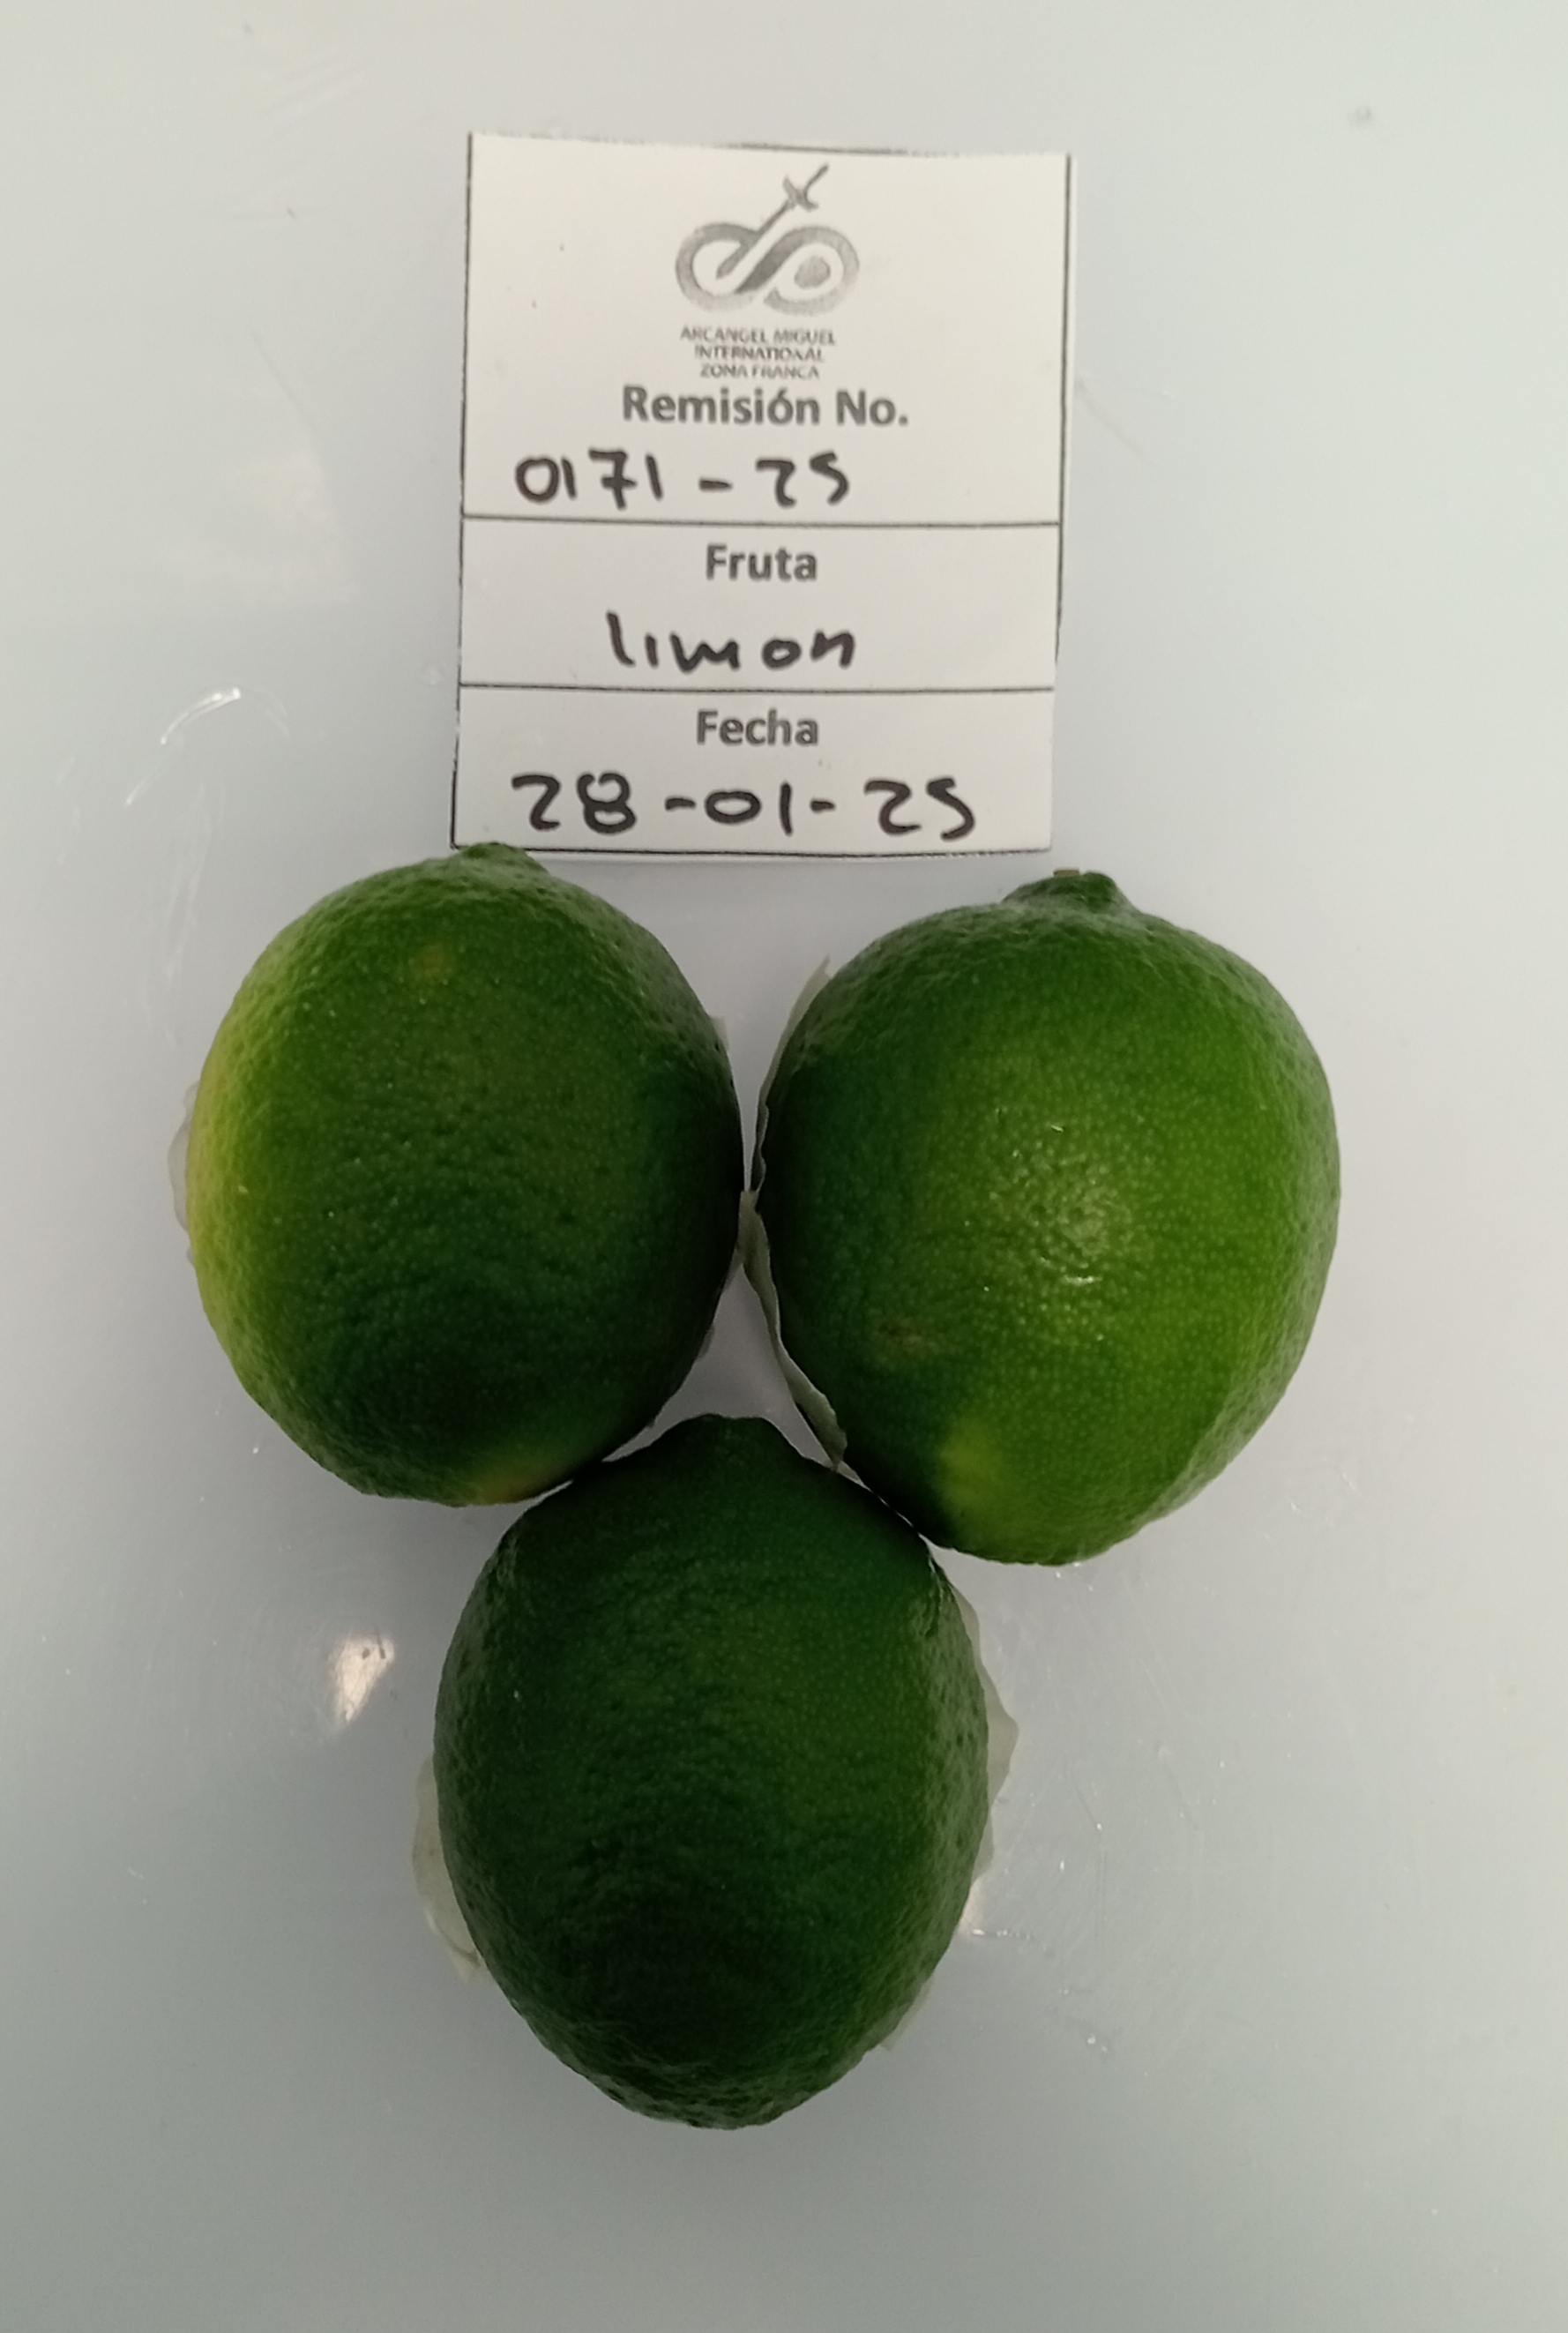 ARCANGEL MIGUEL
INTERNATIONAL
ZONA FRANCA
Remisión No.
0171-25
Fruta
limon
Fecha
28-01-25